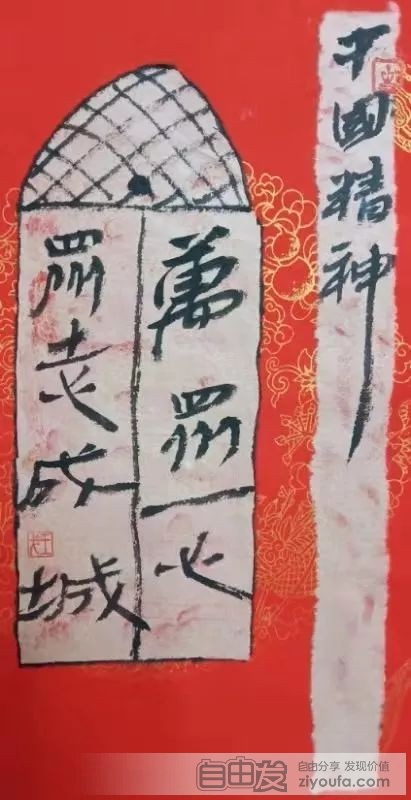 中国精神
萬眾一心
眾志成城
自由发
自由分享 发现价值
ziyoufa.com